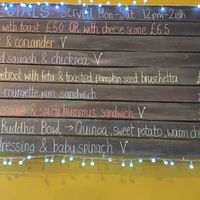 Served Mon-Sat 12pm-2:15pm
with toast £5.0 OR with cheese scone £6.5
& coriander V
squash & chickpea V
beetroot with feta & toasted pumpkin seed bruschetta
courgette jam sandwich
& spicy hummus sandwich V
Buddha Bowl → Quinoa, sweet potato, warm che
dressing & baby spinach V